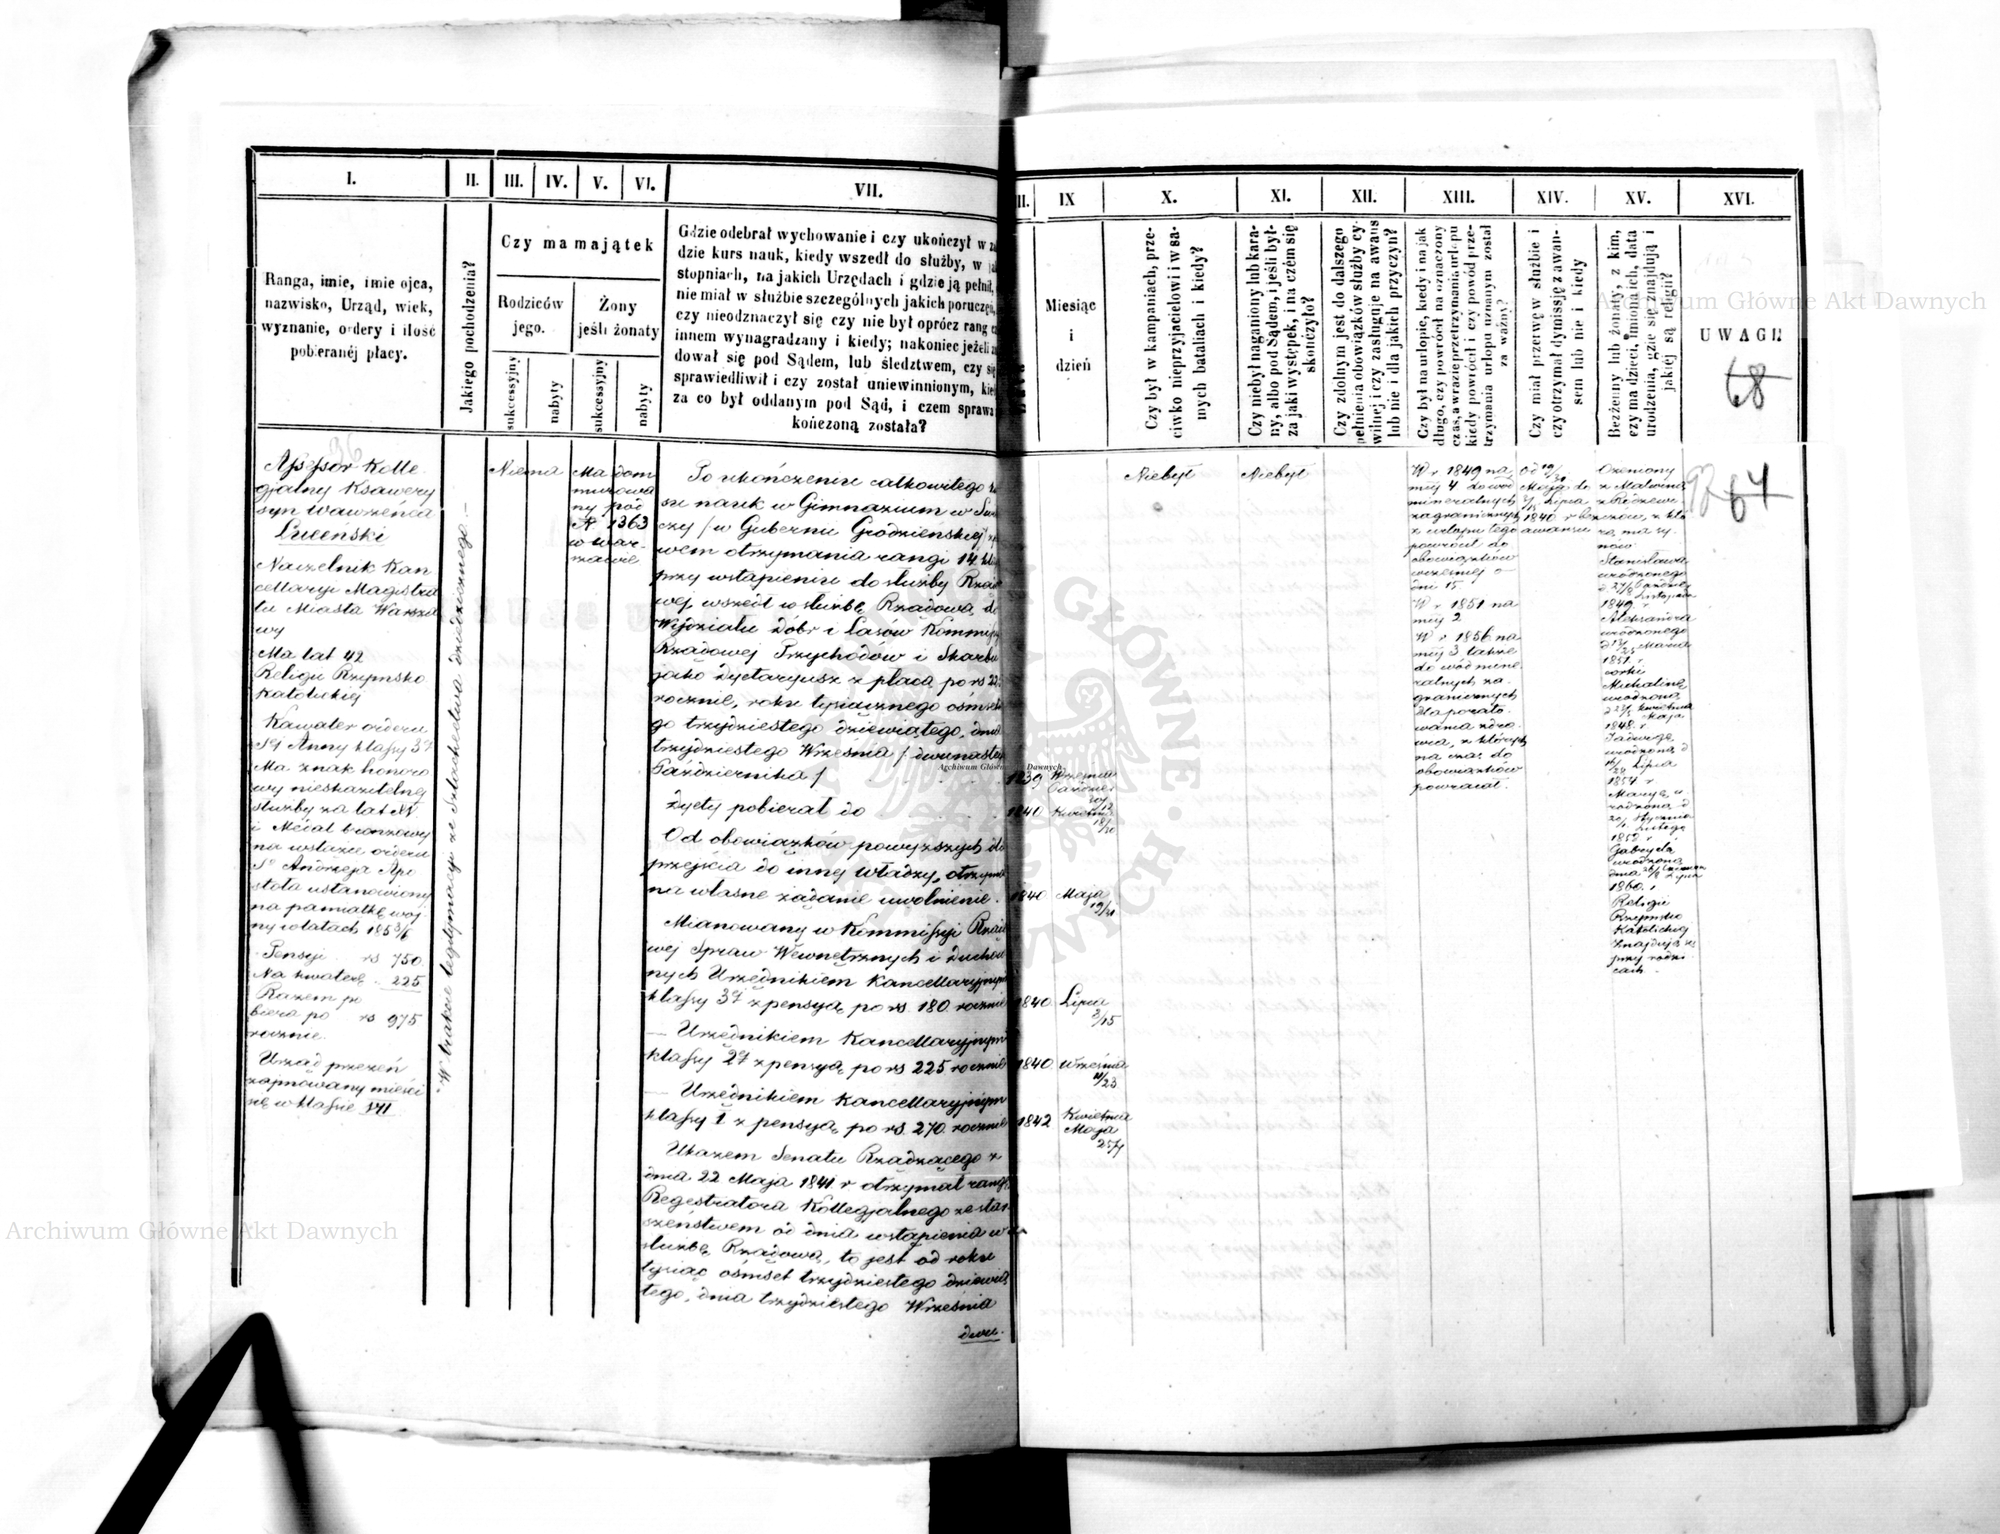 I.
II.
III.
IV.
V.
VI.
VII.
Ranga, imie, imie ojca,
nazwisko, Urząd, wiek,
wyznanie, ordery i ilość
pobieranéj płacy.
Jakiego pochodzenia?
Czy ma majątek
Rodziców
jego.
Żony
jeśli żonaty
sukcessyjny
nabyty
sukcessyjny
nabyty
Gdzie odebrał wychowanie i czy ukończył w
dzie kurs nauk, kiedy wszedł do służby, w
stopniach, na jakich Urzędach i gdzie ją pełnił,
nie miał w służbie szczególnych jakich poruczeń,
czy nieodznaczył się czy nie był oprócz rang
innem wynagradzany i kiedy; nakoniec jeżeli
dował się pod Sądem, lub śledztwem, czy się
sprawiedliwił i czy został uniewinnionym,
za co był oddanym pod Sąd, i czem sprawa
kończoną została?
36
Assessor Kolle
gjalny Ksawery
syn Wawrzeńca
Naczelnik Kan
cellaryi Magistra
tu Miasta Warsza
wy
Ma lat 42
Religii Rzymsko
Katolickiéj
Kawaler orderu
Sej Anny klassy 3éj
Ma znak honoro
wy nieskazitelnej
służby za lat XV
i Medal bronzowy
na wstążce orderu
So Andrzeja Apo
stoła ustanowiony
na pamiątkę woj
ny w latach 1853/6
Pensyi rs 750
Na kwaterę 225
Razem po
biera po rs 975
rocznie.
Urząd przezeń
zajmowany mieści
się w klassie VII
W trakcie legitymacji ze Szlachectwa dziedzicznego.
Niema
Ma dom
murowa
ny pod
N 1363
w War-
szawie
Po ukończeniu całkowitego
su nauk w Gimnazium w
czy / w Gubernii Grodzieńskiej
wem otrzymania rangi 14
przy wstąpieniu do służby Rzą
wej, wszedł w służbę Rządową do
Wydziału Dóbr i Lasów Kommissy
Rządowej Przychodów i Skarbu
jako Dyetaryusz z płacą po rs 22
rocznie, roku tysiącznego ośmset
go trzydziestego dziewiątego, dnia
trzydziestego Września / dwunastego
Października /
Dyety pobierał do
Od obowiązków powyższych dla
przejścia do innej władzy, otrzymał
na własne żądanie uwolnienie.
Mianowany w Kommissyi Rządo
wej Spraw Wewnętrznych i Ducho
nych Urzędnikiem Kancellaryjnym
klassy 3éj z pensyą po rs 180 rocznie
— Urzędnikiem Kancellaryjnym
klassy 2éj z pensyą po rs 225 rocznie
— Urzędnikiem Kancellaryjnym
klassy I z pensyą po rs. 270. rocznie
Ukazem Senatu Rządzącego z
dnia 22 Maja 1841 r otrzymał rangę
Regestratora Kollegjalnego ze star
szeństwem od dnia wstąpienia w
służbę Rządową, to jest od roku
tysiąc ośmset trzydziestego dziewią
tego, dnia trzydziestego Września
dwu.
IX
X.
XI.
XII.
XIII.
XIV.
XV.
XVI.
Miesiąc
i
dzień
Czy był w kampaniach, prze-
ciwko nieprzyjacielowi i w sa-
mych bataliach i kiedy?
Czy niebył naganiony lub kara-
ny, albo pod Sądem, i jeśli był-
za jaki występek, i na czém się
skończyło?
Czy zdolnym jest do dalszego
pełnienia obowiązków służby cy-
wilnej i czy zasługuje na awans
lub nie i dla jakich przyczyn?
Czy był na urlopie, kiedy i na jak
długo, czy powrócił na oznaczony
czas, a w razie przetrzymania urlopu
kiedy powrócił i czy powód prze-
trzymania urlopu uznanym został
za ważny?
Czy miał przerwę w służbie i
czy otrzymał dymissję z awan-
sem lub nie i kiedy
Bezżenny lub żonaty, z kim,
czy ma dzieci, imiona ich, data
urodzenia, gdzie się znajdują i
jakiéj są religii?
UWAGI
68
64
1839 Września
1840 Kwietnia
18/30
1840 Maja
19/31
1840 Lipca
3/15
1840 Września
11/23
1842 Kwietnia
Maja
25/7
Niebył
Niebył
W r 1849 na
mcy 4 do wód
mineralnych
zagranicznych
z urlopu tego
powrócił do
obowiązków
wcześniej o
dni 15
W r 1851 na
mcy 2
W r 1856 na
mcy 3 także
do wód mine
ralnych za
granicznych
dla porato
wania zdro
wia, z których
na czas do
obowiązków
powracał.
Od 19/31
Maja do
3/15 Lipca
1840 r bez
awansu
Ożeniony
z Malwiną
z któ
rą ma sy
nów
Stanisława
urodzonego
1849 r
Alexandra
urodzonego
Marca
1851 r
córki
Michalinę
urodzoną
Kwietnia
Maja
1848 r
Jadwigę
urodzoną d
Lipca
1854 r
Maryę u
rodzoną d
Stycznia
Lutego
Gabryelę
urodzoną
dnia
1860. r
Religii
Rzymsko
Katolickiej
znajdują się
przy rodzi
cach.
Archiwum Główne Akt Dawnych
Archiwum Główne Akt Dawnych
Archiwum Główne Akt Dawnych